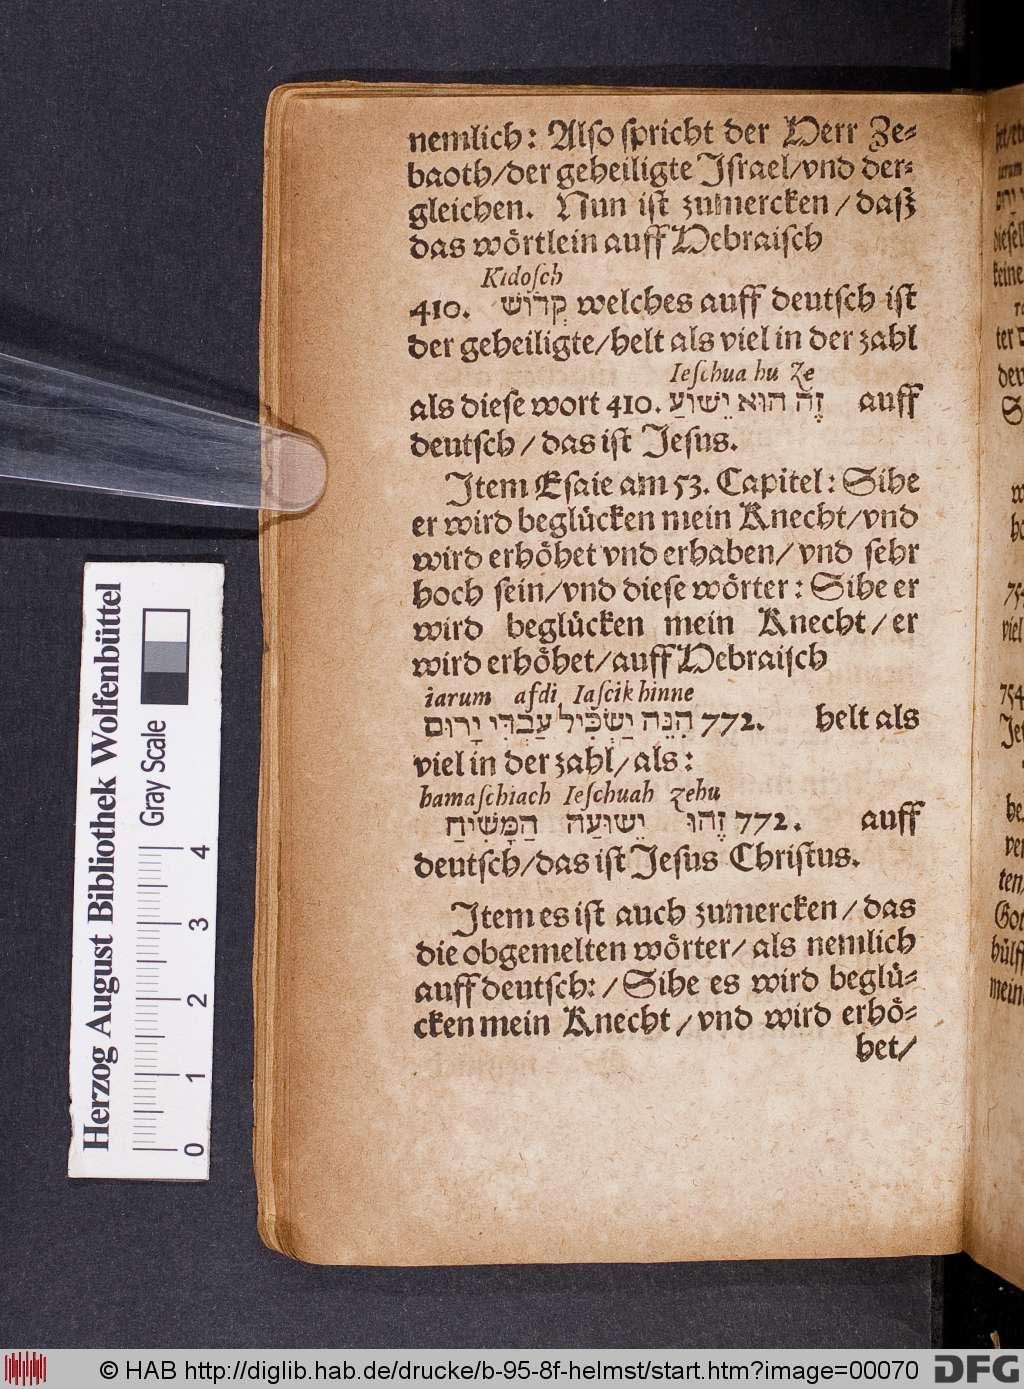 nemlich: Also spricht der Herr Ze-
baoth/der geheiligte Israel/vnd der-
gleichen. Nun ist zumercken/dasz
das wörtlein auff Hebraisch
Kidosch
410. קְדוֹשׁ welches auff deutsch ist
der geheiligte/helt als viel in der zahl
Ieschua hu Ze
als diese wort 410. זֶה הוּא יֵשׁוּעַ auff
deutsch/das ist Jesus.
Item Esaie am 53. Capitel: Sihe
er wird beglücken mein Knecht/vnd
wird erhöhet vnd erhaben/vnd sehr
hoch sein/vnd diese wörter: Sihe er
wird beglücken mein Knecht/er
wird erhöhet/auff Hebraisch
iarum afdi Iascik hinne
הִנֵּה יַשְׂכִּיל עַבְדִּי יָרוּם 772. helt als
viel in der zahl/als:
hamaschiach Ieschuah zehu
זֶהוּ יֵשׁוּעַה הַמָּשִׁיחַ 772. auff
deutsch/das ist Jesus Christus.
Item es ist auch zumercken/das
die obgemelten wörter/als nemlich
auff deutsch:/Sihe es wird beglü-
cken mein Knecht/vnd wird erhö-
het/
Herzog August Bibliothek Wolfenbüttel
Gray Scale
0 1 2 3 4
© HAB http://diglib.hab.de/drucke/b-95-8f-helmst/start.htm?image=00070 DFG